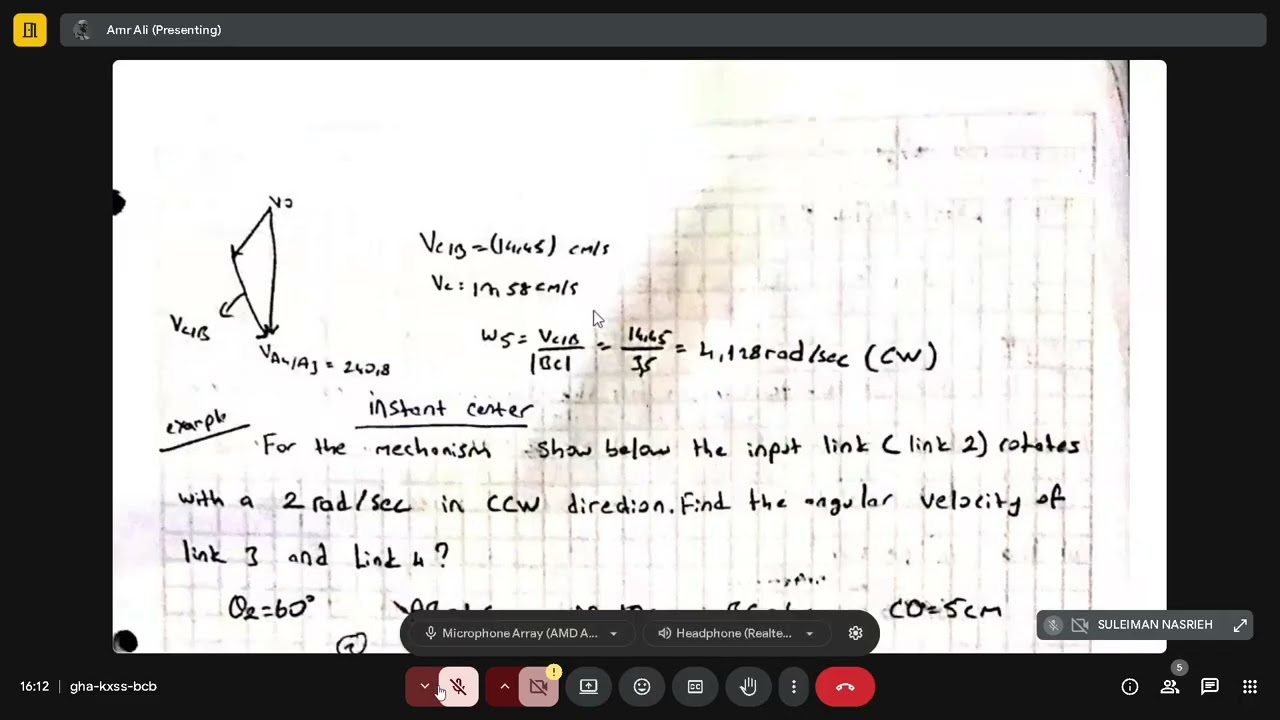 Amr Ali (Presenting)
VC/B = (14,45) cm/s
ω5 = VC/B / |BC| = 14,45 / 3,5 = 4,128 rad/sec (CW)
VC/B
VA4/A3 = 240,8
instant center
example
For the mechanism show below the input link (link 2) rotates
with a 2 rad/sec in CCW direction. Find the angular velocity of
link 3 and Link 4?
θ2=60° CD=5cm
Microphone Array (AMD A... Headphone (Realte...
SULEIMAN NASRIEH
16:12 | gha-kxss-bcb
5